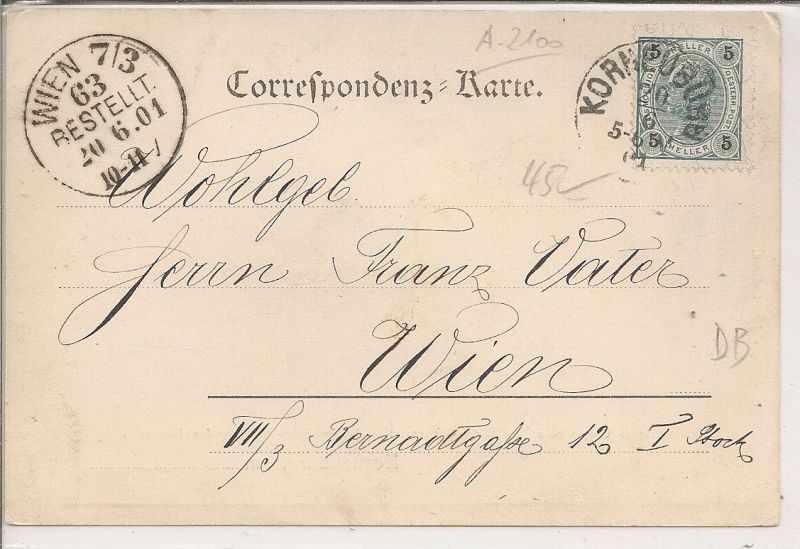 A-2100
WIEN 7/3
63
BESTELLT.
20 6.01
10-11 V
Correspondenz-Karte.
KORNEUBURG
6
01
5 HELLER 5
5 HELLER 5
45
Wohlgeb
Herrn Franz Vater
Wien
DB
VIII/3 Bernardtgaße 12 I Stock